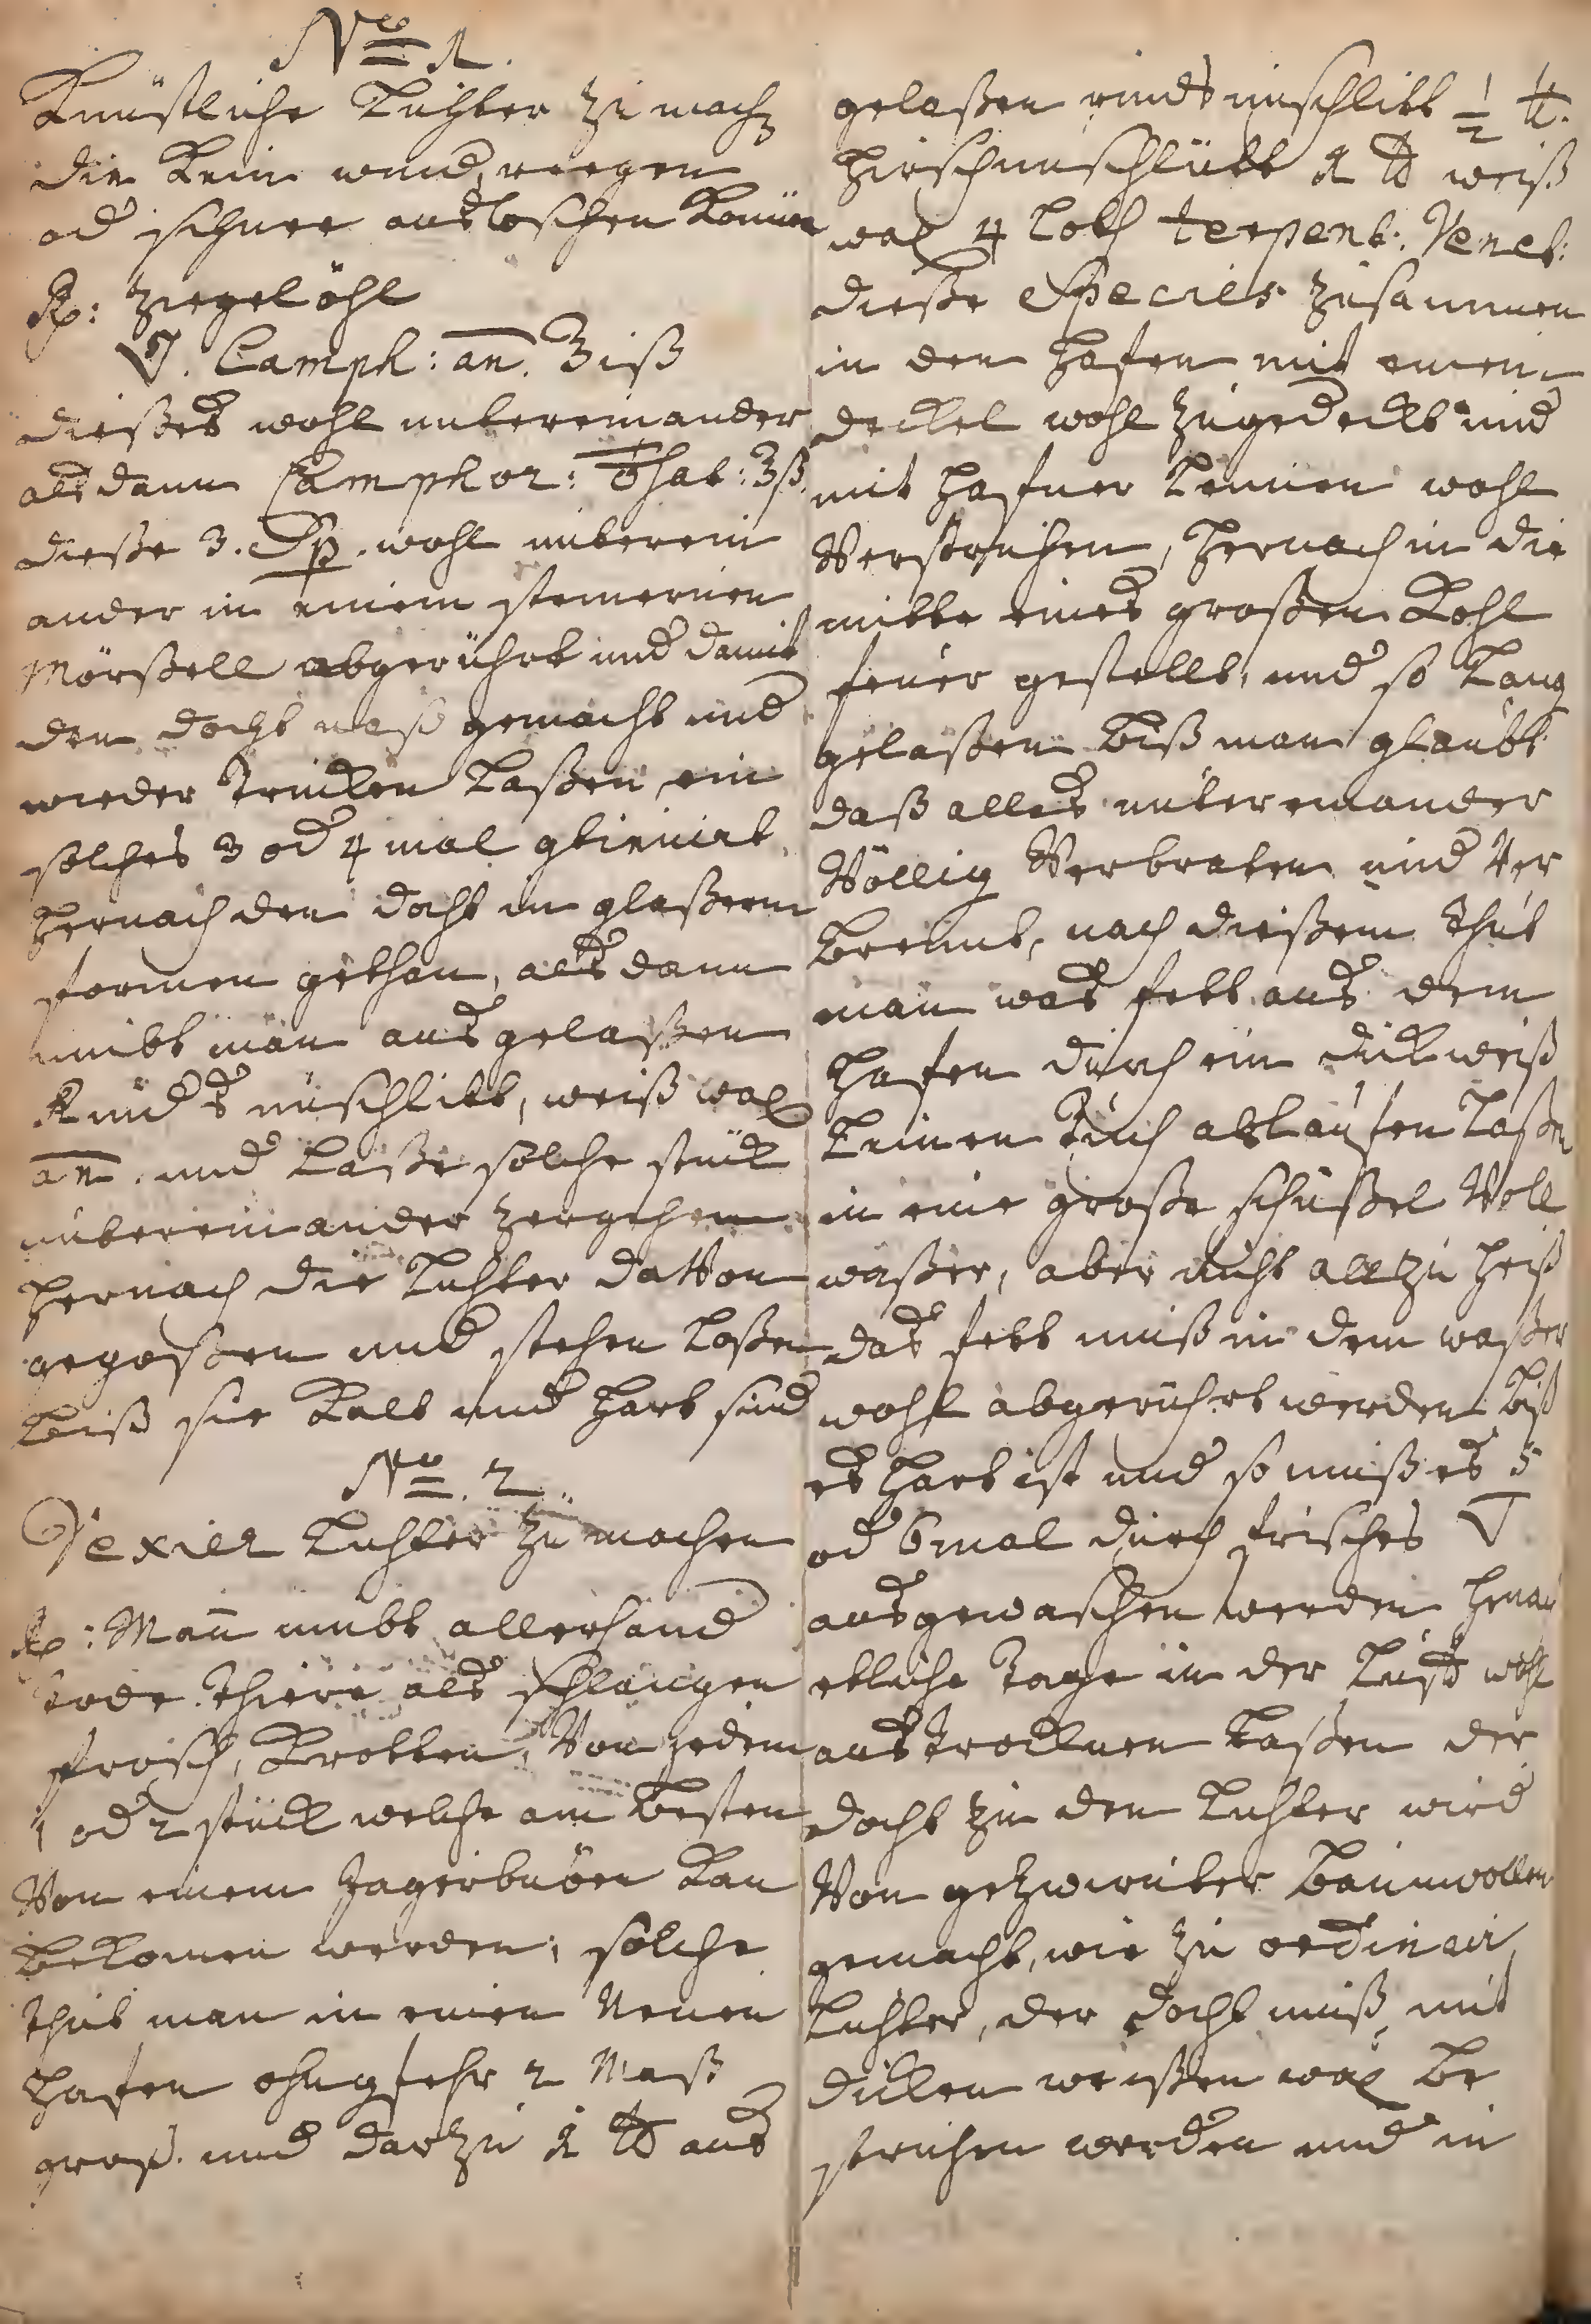 No 1.
Künstliche Lichter zu mach
die Kein wind, reegen
od schnee auslöschen Könn
Rp: Ziegelöhl
V. Camph: an. ʒiß
dießes wohl untereinander
als dann Camphor: ʒß.
dieße 3. Sp. wohl unterein
ander in einem steinernen
Mörßell abgerührt und damit
den docht naß gemacht und
wieder Trucken Laßen, ein
solches 3 od 4 mal
hernach den docht in gläßern
formen gethan, als dann
nimbt man ausgelaßen
Rinds unschlitt, weiß wax
an. und Laße solche stück
untereinander zergehen
hernach die Lichter daVon
gegoßen und stehen Laßen
biß sie Kalt und hart sind
No. 2.
Vexier Lichter zu machen
Rp: Man nimbt allerhand
Tode Thiere als schlangen
frosch, Krotten, Von jedem
1 od 2 stück welche am besten
Von einem Jägerbuben Kan
beKomen werden, solche
thut man in einen Neuen
hafen ohngfehr 2 Maß
groß. und darzu 1 ℔ aus
gelaßen rinds unschlitt ½ ℔.
hirschunschlütt 1 ℔ weiß
wax 4 Loth terpent. Venet:
dieße Species zusammen
in den hafen mit einem
deckel wohl zugedeckt und
mit hafner Leimen wohl
Verstrichen, hernach in die
mitte eines großen Kohl
feuer gestellt, und so Lang
gelaßen biß man glaubt
daß alles untereinander
Völlig Verbraten und Ver
brennt, nach dießem thut
man das fett aus dem
hafen durch ein dick weiß
Leinen Tuch ablaufen Laßen
in eine große schüßel Voll
waßer, aber nicht allzu heiß
das fett muß in dem waßer
wohl abgerührt werden biß
es hart ist und so muß es 5
od 6 mal durch frisches ▽
ausgewaschen werden hernach
etliche Tage in der Luft wohl
austrocknen Laßen der
docht zu den Lichter wird
Von gezwirnter baumwollen
gemacht, wie zu ordinair
Lichter, der docht muß mit
dicken weißen wax be
strichen werden und in